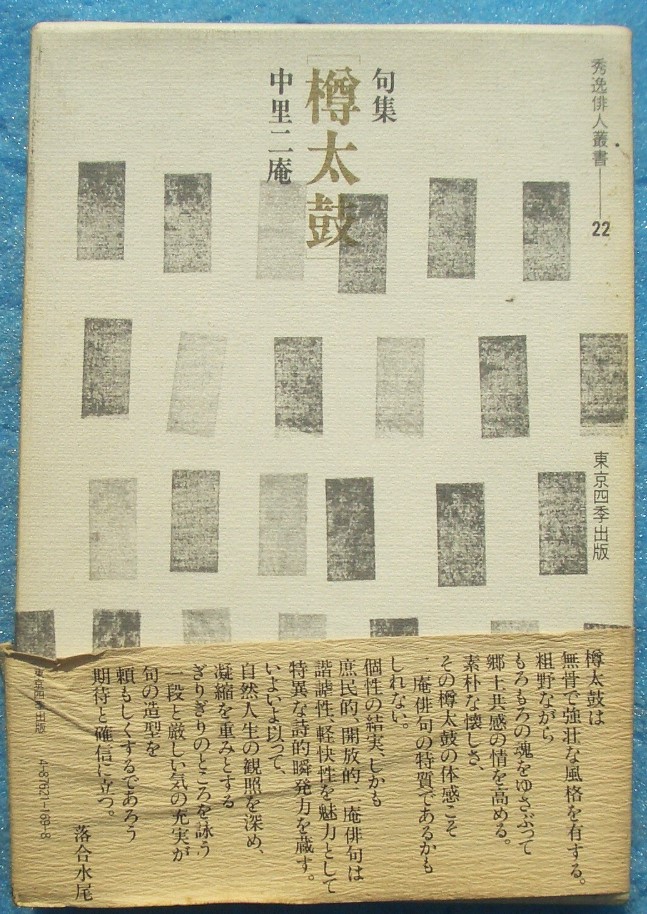 秀逸俳人叢書――22
句集
「樽太鼓」
中里二庵
東京四季出版
樽太鼓は
無骨で強壮な風格を有する。
粗野ながら
もろもろの魂をゆさぶって
郷土共感の情を高める。
素朴な懐しさ、
その樽太鼓の体感こそ
二庵俳句の特質であるかも
しれない。
個性の結実、しかも
庶民的、開放的、二庵俳句は
諧謔性、軽快性を魅力として
特異な詩的瞬発力を蔵す。
いよいよ以って、
自然人生の観照を深め、
凝縮を重みとする
ぎりぎりのところを詠う
一段と厳しい気の充実が
句の造型を
頼もしくするであろう
期待と確信に立つ。
落合水尾
東京四季出版